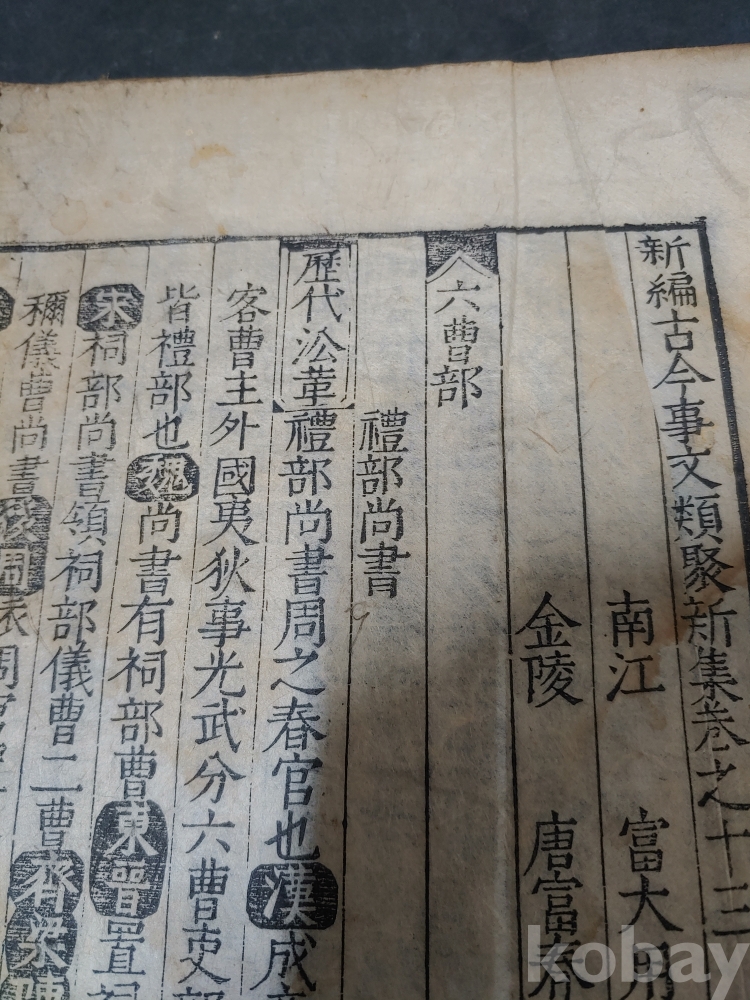 新編古今事文類聚新集卷之十三
南江 富大用
金陵 唐富春
六曹部
禮部尚書
歷代沿革 禮部尚書周之春官也漢成
客曹主外國夷狄事光武分六曹吏部
皆禮部也魏尚書有祠部曹東晉置祠
宋祠部尚書領祠部儀曹二曹齊梁陳
稱儀曹尚書後周依周官
kobay